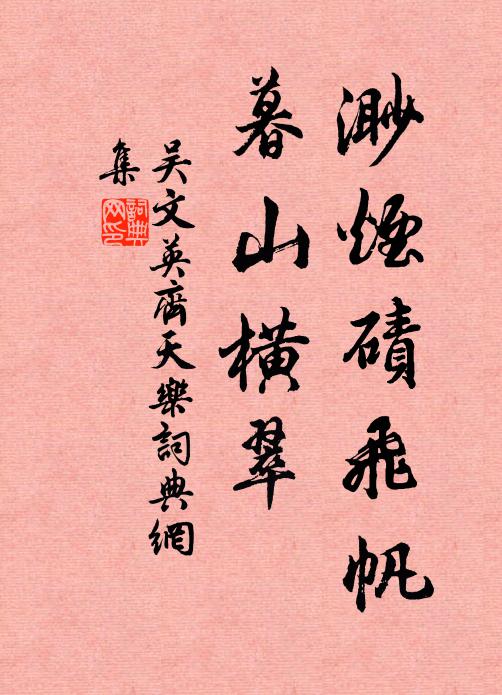 渺煙磧飛帆
暮山橫翠
吴文英齊天樂詞典網
集
詞典網印